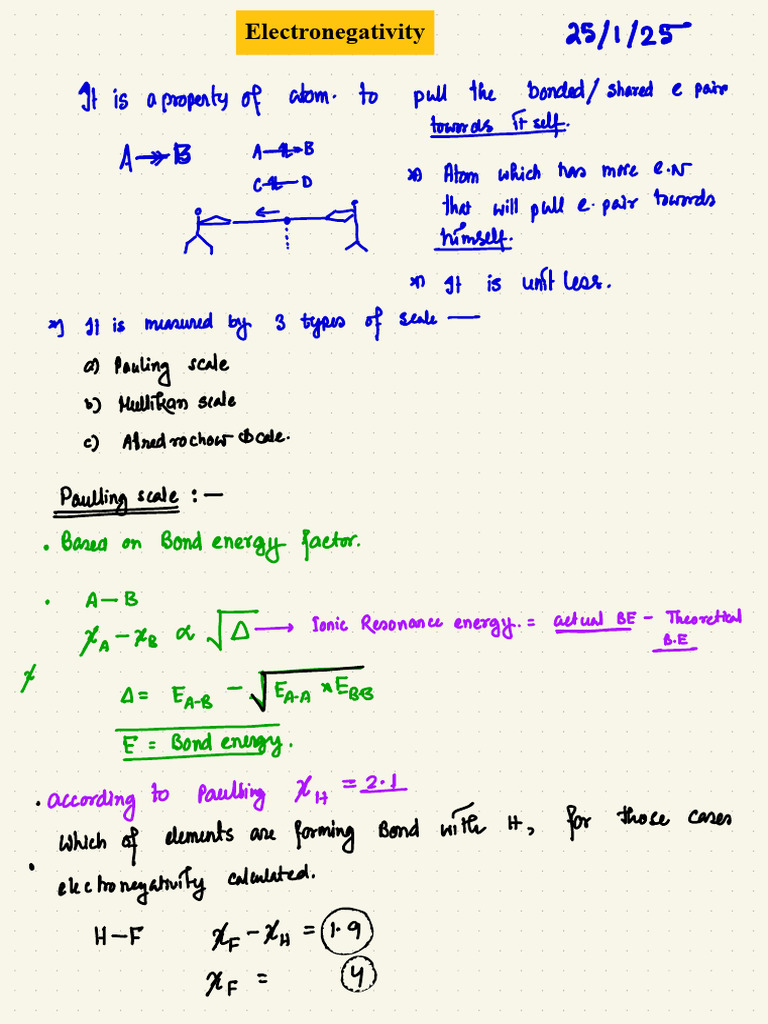 Electronegativity
25/1/25
It is a property of atom. to pull the bonded/shared e pair
towords it self.
A B
A B
C D
*) Atom which has more e.N
that will pull e. pair towords
himself.
*) It is unit less.
*) It is measured by 3 types of scale —
a) Pauling scale
b) Mullikan scale
c) Alred rochow scale.
Paulling scale :—
• Based on Bond energy factor.
• A–B
χA – χB ∝ √Δ → Ionic Resonance energy. = actual BE – Theoretical
B.E
χ
Δ = EA-B – √EA-A × EBB
E = Bond energy.
• according to Paulling χH = 2.1
Which of elements are forming Bond with H, for those cases
• electronegativity calculated.
H–F χF – χH = 1.9
χF = 4